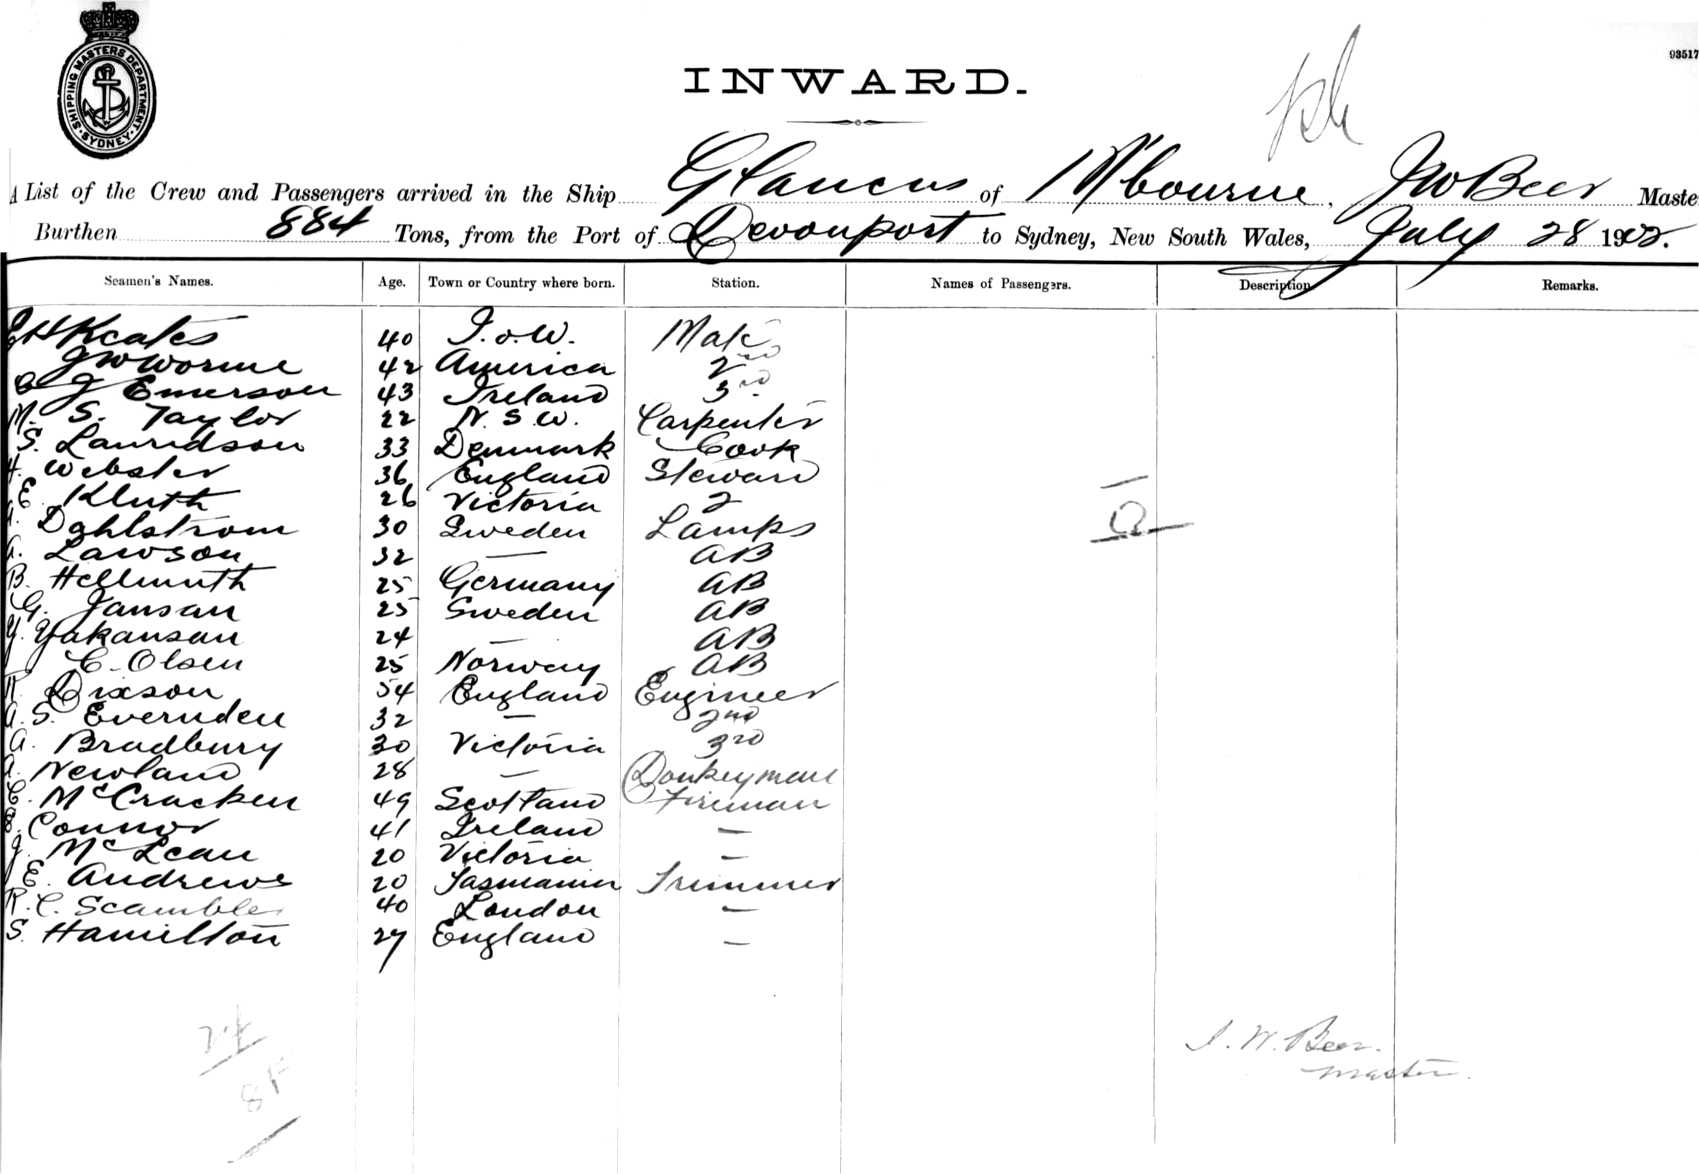 SHIPPING MASTERS DEPARTMENT. SYDNEY
93517
INWARD.
A List of the Crew and Passengers arrived in the Ship Glaucus of M'bourne, J W Beer Maste
Burthen 884 Tons, from the Port of Devonport to Sydney, New South Wales, July 28 1902.
Seamen's Names. Age. Town or Country where born. Station. Names of Passengers. Description Remarks.
H Keates 40 I. o. W. Mate
J W Worme 42 America 2nd
C J Emerson 43 Ireland 3rd
M. S. Taylor 22 N. S. W. Carpenter
S. Lauridson 33 Denmark Cook
H. Webster 36 England Steward
E. Kluth 26 Victoria 2
Dahlstrom 30 Sweden Lamps
Lawson 32 — AB
B. Hellmuth 25 Germany AB
G. Jansan 25 Sweden AB
Y. Yakansan 24 — AB
C. Olsen 25 Norway AB
Dixson 54 England Engineer
A. S. Evernden 32 — 2nd
A. Bradbury 30 Victoria 3rd
A. Newland 28 — Donkeyman
C. McCracken 49 Scotland Fireman
Connor 41 Ireland —
J. McLean 20 Victoria —
E. Andrews 20 Tasmania Trimmer
R. C. Scambler 40 London —
S. Hamilton 27 England —
J. W. Beer.
Master.